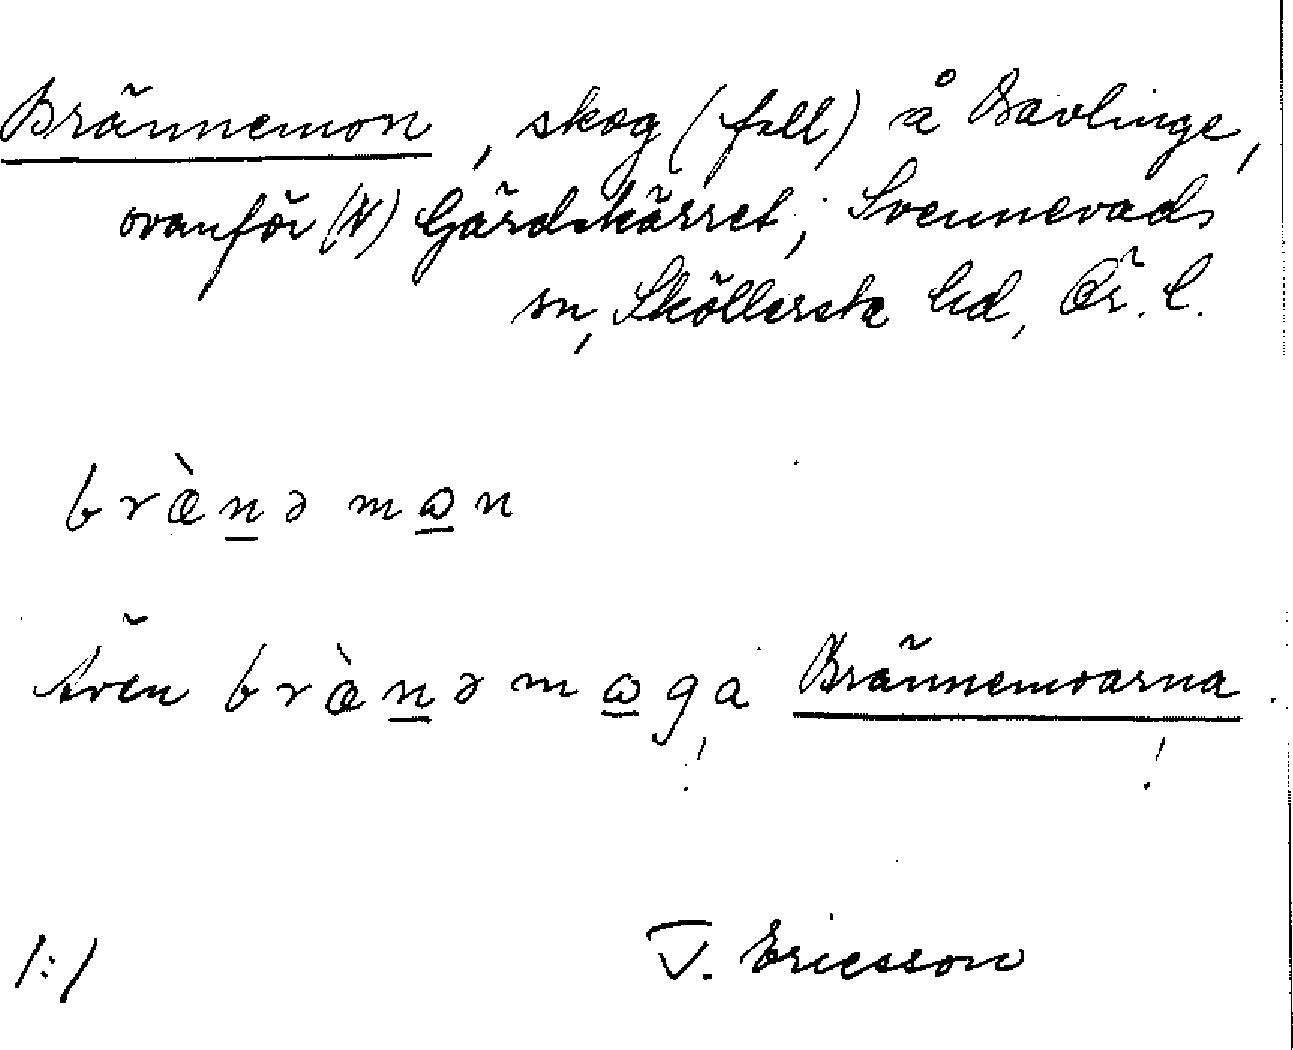 Brännemon, skog (fäll) å Bavlinge,
ovanför (N) Gärdskärret, Svennevads
sn, Sköllersta hd, Ör. l.
bræ̀n̲ə mɷ̲n
Även bræ̀n̲ə mɷ̲ga Brännemoarna.
! !
/:/ T. Ericsson